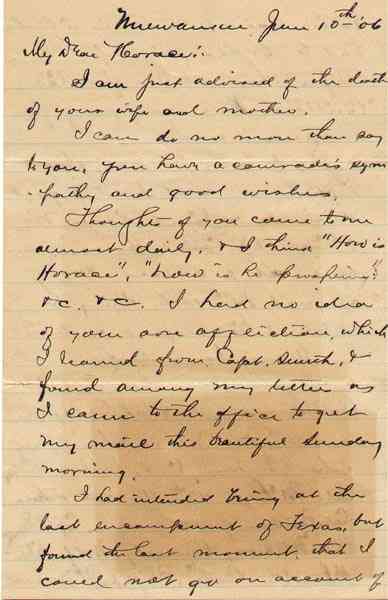 Milwaukee June 10th '06
My Dear Horace:
I am just advised of the death
of your wife and mother.
I can do no more than say
to you, you have a comrade's sym-
pathy and good wishes.
Thoughts of you come to me
almost daily, & I think "How is
Horace", "how is he prospering"
&c. &c. I had no idea
of your sore affliction, which
I learned from Capt. & 
found among my letters as
I came to the office to get
my mail this beautiful Sunday
morning.
I had intended being at the
last encampment of Texas, but
found the last moment that I
could not go on account of